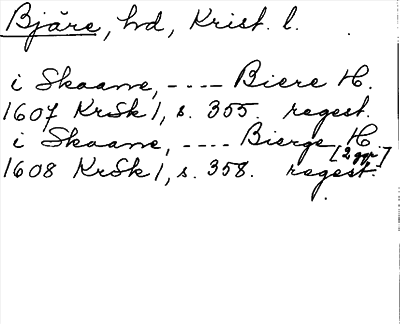 Bjäre, hd, Krist. l.
i Skaane, ---- Biere H.
1607 KrSk 1, s. 355. regest.
i Skaane, ---- Bierge H.
[2 ggr]
1608 KrSk 1, s. 358. regest.